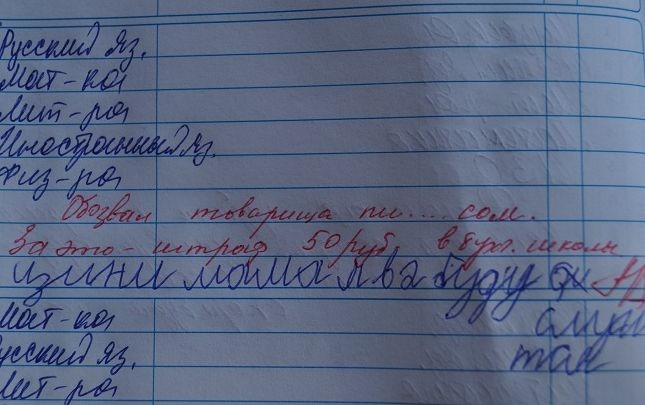 Русский яз.
Мат-ка
Лит-ра
Иностранный яз.
Физ-ра
Обозвал товарища пи....сом.
За это - штраф 50 руб. в бухг. школы
изини мама я ва буду
Мат-ка
Русский яз.
так
Лит-ра